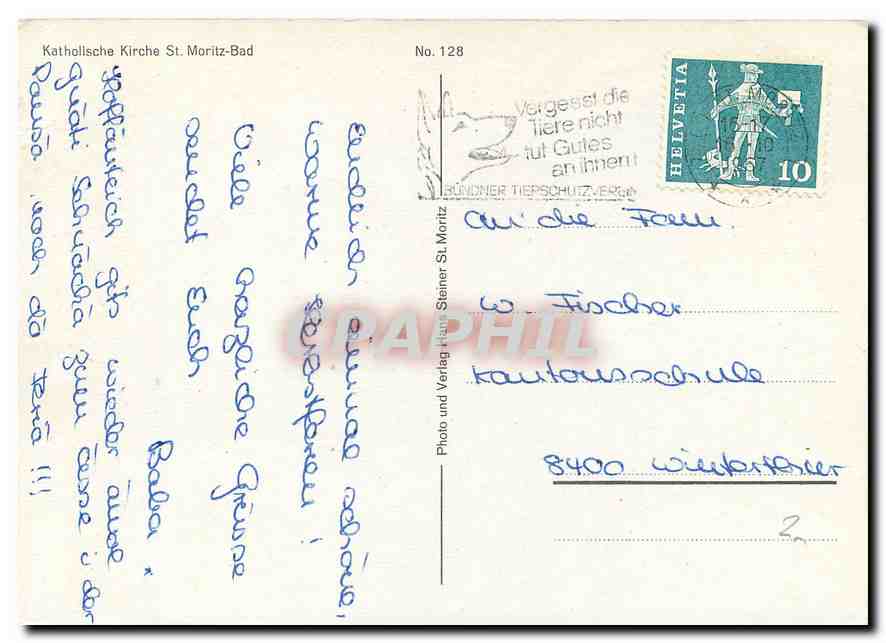 Katholische Kirche St. Moritz-Bad
No. 128
Endlich einmal schöne,
warme Herbstferien!
Viele herzliche Grüsse
sendet Euch
Baba
Hoffäntlich gits wieder ämal
guäti zum ässe i der
Pausä, noch dä !!!
Photo und Verlag Hans Steiner St. Moritz
Vergesst die
Tiere nicht
tut Gutes
an ihnen!
BÜNDNER TIERSCHUTZVEREIN
HELVETIA
10
An die Fam.
W. Fischer
Kantonsschule
8400 Winterthur
2
CPAPHIL